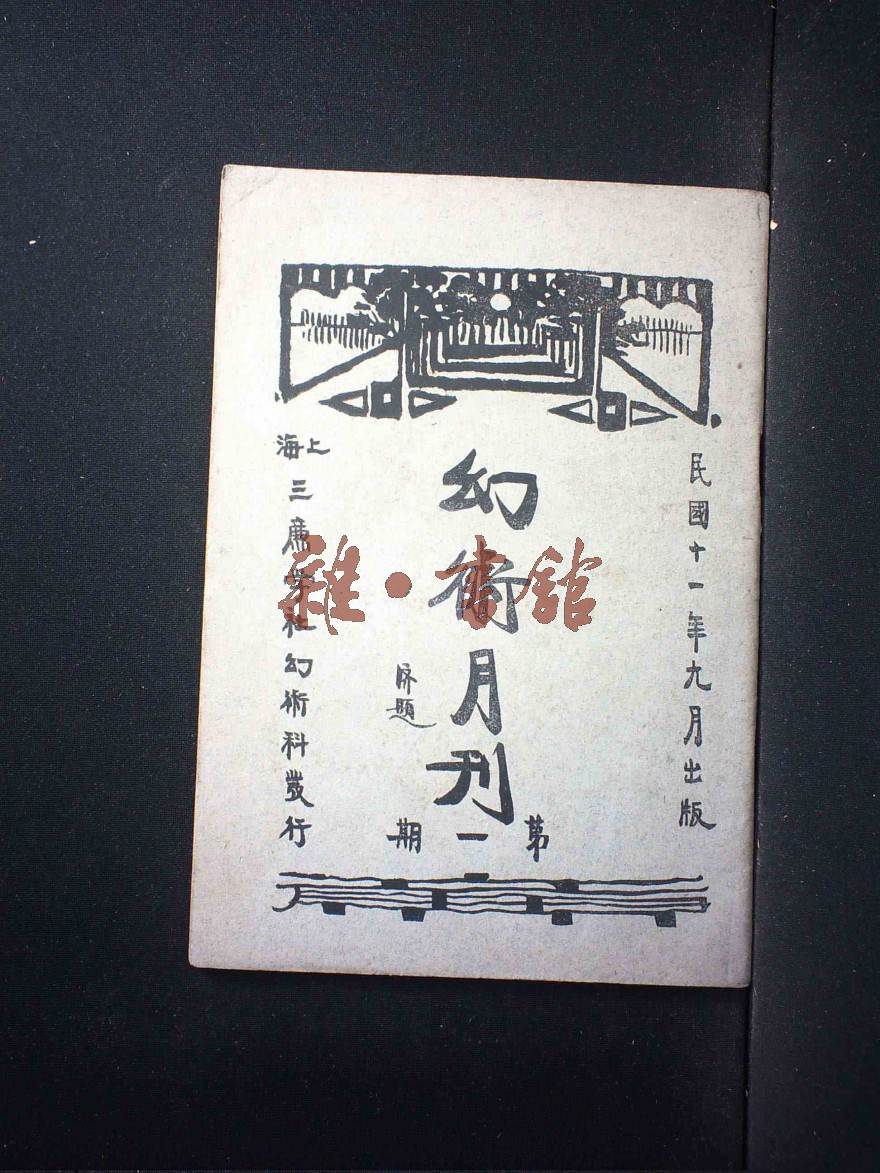 民國十一年九月出版
幻術月刊
濟題
第一期
上海
三廉學社幻術科發行
雜·書館